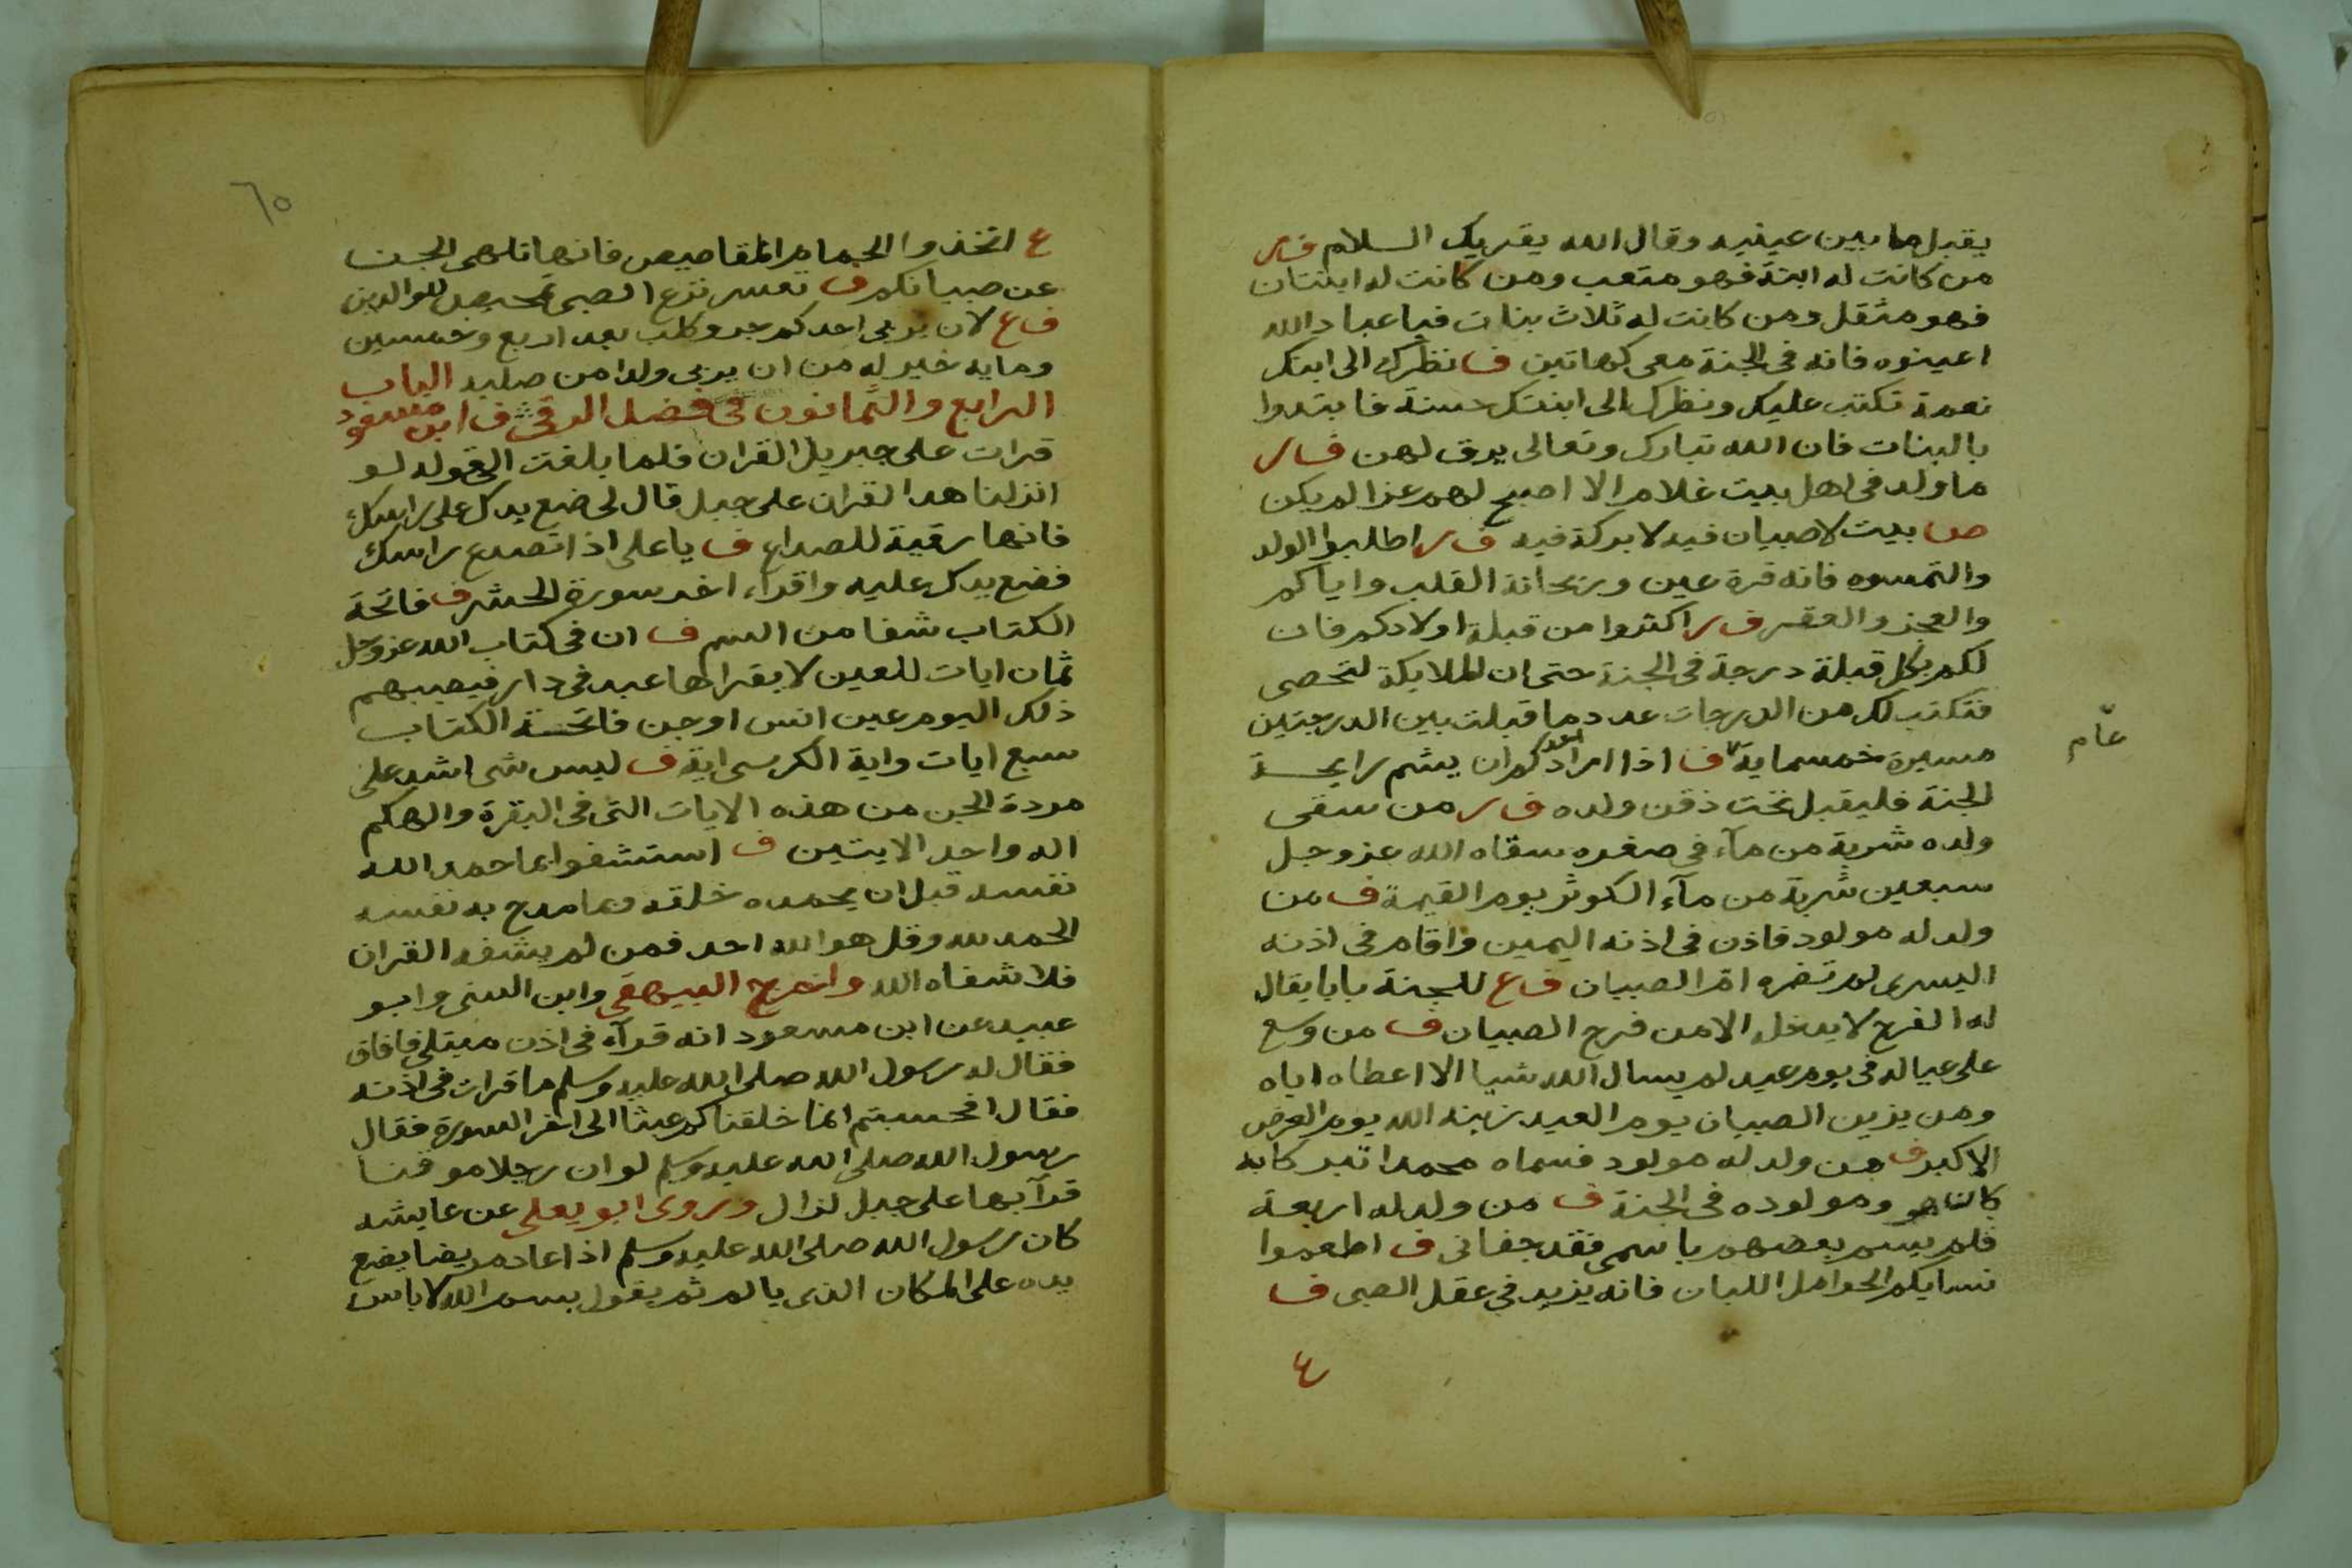 يقبل ما بين عينيه وقال الله يقريك السلام ف ر
من كانت له ابنة فهو متعب ومن كانت له ابنتان
فهو مثقل ومن كانت له ثلاث بنات فيا عباد الله
اعينوه فانه في الجنة معي كهاتين ف نظرك الى ابنك
نعمة تكتب عليك ونظرك الى ابنتك حسنة فابتدوا
بالبنات فان الله تبارك وتعالى يرق لهن ف ر
ما ولد في اهل بيت غلام الا اصبح لهم عزا لم يكن
ص بيت لا صبيان فيه لا بركة فيه ف ر اطلبوا الولد
والتمسوه فانه قرة عين وريحانة القلب واياكم
والعجز والعقر ف ر اكثروا من قبلة اولادكم فان
لكم بكل قبلة درجة في الجنة حتى ان الملايكة لتحصى
فتكتب لك من الدرجات عدد ما قبلت بين الدرجتين
مسيرة خمسماية ف اذا اراد احدكم ان يشم رايحة
عام
الجنة فليقبل تحت ذقن ولده ف ر من سقى
ولده شربة من مآء في صغره سقاه الله عز وجل
سبعين شربة من مآء الكوثر يوم القيمة ف من
ولد له مولود فاذن في اذنه اليمين واقام في اذنه
اليسرى لم تضره ام الصبيان ف ع للجنة بابا يقال
له الفرح لا يدخله الا من فرح الصبيان ف من وسع
على عياله في يوم عيد لم يسال الله شيا الا اعطاه اياه
ومن يزين الصبيان يوم العيد زينه الله يوم العرض
الاكبر ف من ولد له مولود فسماه محمدا تبركا به
كان هو ومولوده في الجنة ف من ولد له اربعة
فلم يسم بعضهم باسمي فقد جفاني ف اطعموا
نسايكم الحوامل اللبان فانه يزيد في عقل الصبي ف
ع
٦٥
ع اتخذوا الحمام المقاصيص فانها تلهى الجن
عن صبيانكم ف تعسر نزع الصبي تمحيص للوالدين
ف ع لان يربي احدكم جرو كلب بعد اربع وخمسين
وماية خير له من ان يربى ولدا من صلبه الباب
الرابع والثمانون في فضل الرقى ف ابن مسعود
قرات على جبريل القران فلما بلغت الى قوله لو
انزلنا هدا القران على جبل قال لى ضع يدك على راسك
فانها رقية للصداع ف يا على اذا تصدع راسك
فضع يدك عليه واقراء اخر سورة الحشر ف فاتحة
الكتاب شفا من السم ف ان في كتاب الله عز وجل
ثمان ايات للعين لا يقراها عبد في دار فيصيبهم
ذلك اليوم عين انس او جن فاتحة الكتاب
سبع ايات واية الكرسى اية ف ليس شى اشد على
مردة الجن من هذه الايات التى في البقرة والهكم
اله واحد الايتين ف استشفوا بما حمد الله
نفسه قبل ان يحمده خلقه وبما مدح به نفسه
الحمد لله وقل هو الله احد فمن لم يشفه القران
فلا شفاه الله واخرج البيهقى وابن السنى وابو
عبيد عن ابن مسعود انه قرآء في اذن مبتلى فافاق
فقال له رسول الله صلى الله عليه وسلم ما قرات في اذنه
فقال افحسبتم انما خلقناكم عبثا الى اخر السورة فقال
رسول الله صلى الله عليه وسلم لو ان رجلا موقنا
قرآ بها على جبل لزال وروى ابو يعلى عن عايشه
كان رسول الله صلى الله عليه وسلم اذا عاد مريضا يضع
يده على المكان الذى يالم ثم يقول بسم الله لا باس